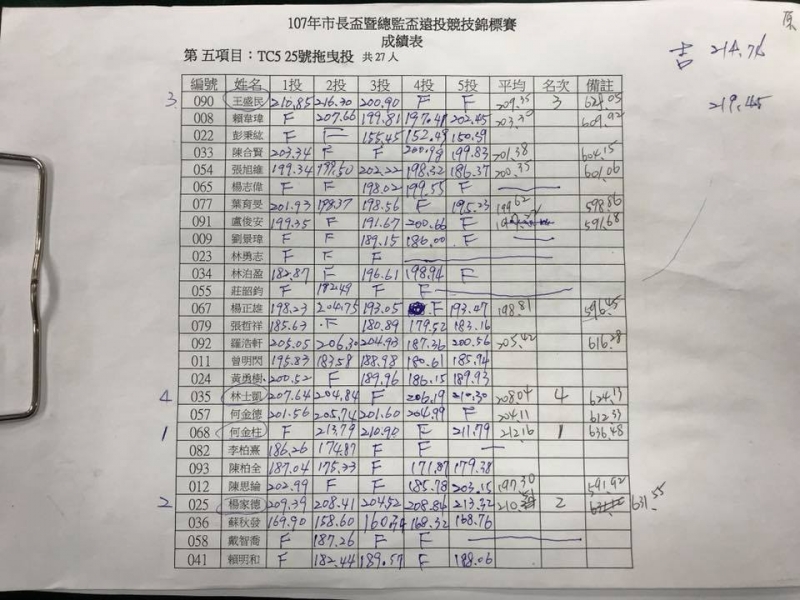 原
107年市長盃暨總監盃遠投競技錦標賽
成績表
第 五項目：TC5 25號拖曳投 共27人
吉 214.76
219.45
編號 姓名 1投 2投 3投 4投 5投 平均 名次 備註
3 090 王盛民 210.85 216.30 200.90 F F 209.35 3 628.05
008 賴韋瑋 F 207.66 199.81 197.41 202.45 203.30 609.92
022 彭秉紘 F F 155.45 152.49 150.59
033 陳合賢 203.34 F F 200.99 199.83 201.38 604.15
054 張旭維 199.34 199.50 202.22 198.32 186.37 200.35 601.06
065 楊志偉 F F 198.02 199.55 F
077 葉育旻 201.93 198.37 198.56 F 195.23 199.62 598.86
091 盧俊安 199.35 F 191.67 200.66 F 591.68
009 劉景瑋 F F 189.15 186.00 F
023 林勇志 F F F
034 林泊盈 182.87 F 196.61 198.94 F
055 莊韶鈞 F 182.49 F
067 楊正雄 198.23 204.75 193.05 F 193.47 198.81 596.45
079 張哲祥 185.63 F 180.89 179.52 183.16
092 羅浩軒 205.05 206.30 204.93 187.36 200.56 205.42 616.28
011 曾明閃 195.83 183.58 188.98 180.61 185.94
024 黃勇樹 200.52 F 189.96 186.15 189.93
4 035 林士凱 207.64 204.84 F 206.19 210.30 208.04 4 624.13
057 何金德 201.56 205.74 201.60 204.99 F 204.11 612.33
1 068 何金柱 F 213.79 210.90 F 211.79 212.16 1 636.48
082 李柏熹 186.26 174.87 F F
093 陳柏全 187.04 175.33 F 171.87 179.38
012 陳思綸 202.99 F F 185.78 203.15 197.30 591.92
2 025 楊家德 209.39 208.41 204.52 208.84 213.32 2 631.55
036 蘇秋發 169.90 158.60 168.32 168.76
058 戴智喬 F 187.26 F F
041 賴明和 F 182.44 189.57 F 188.06